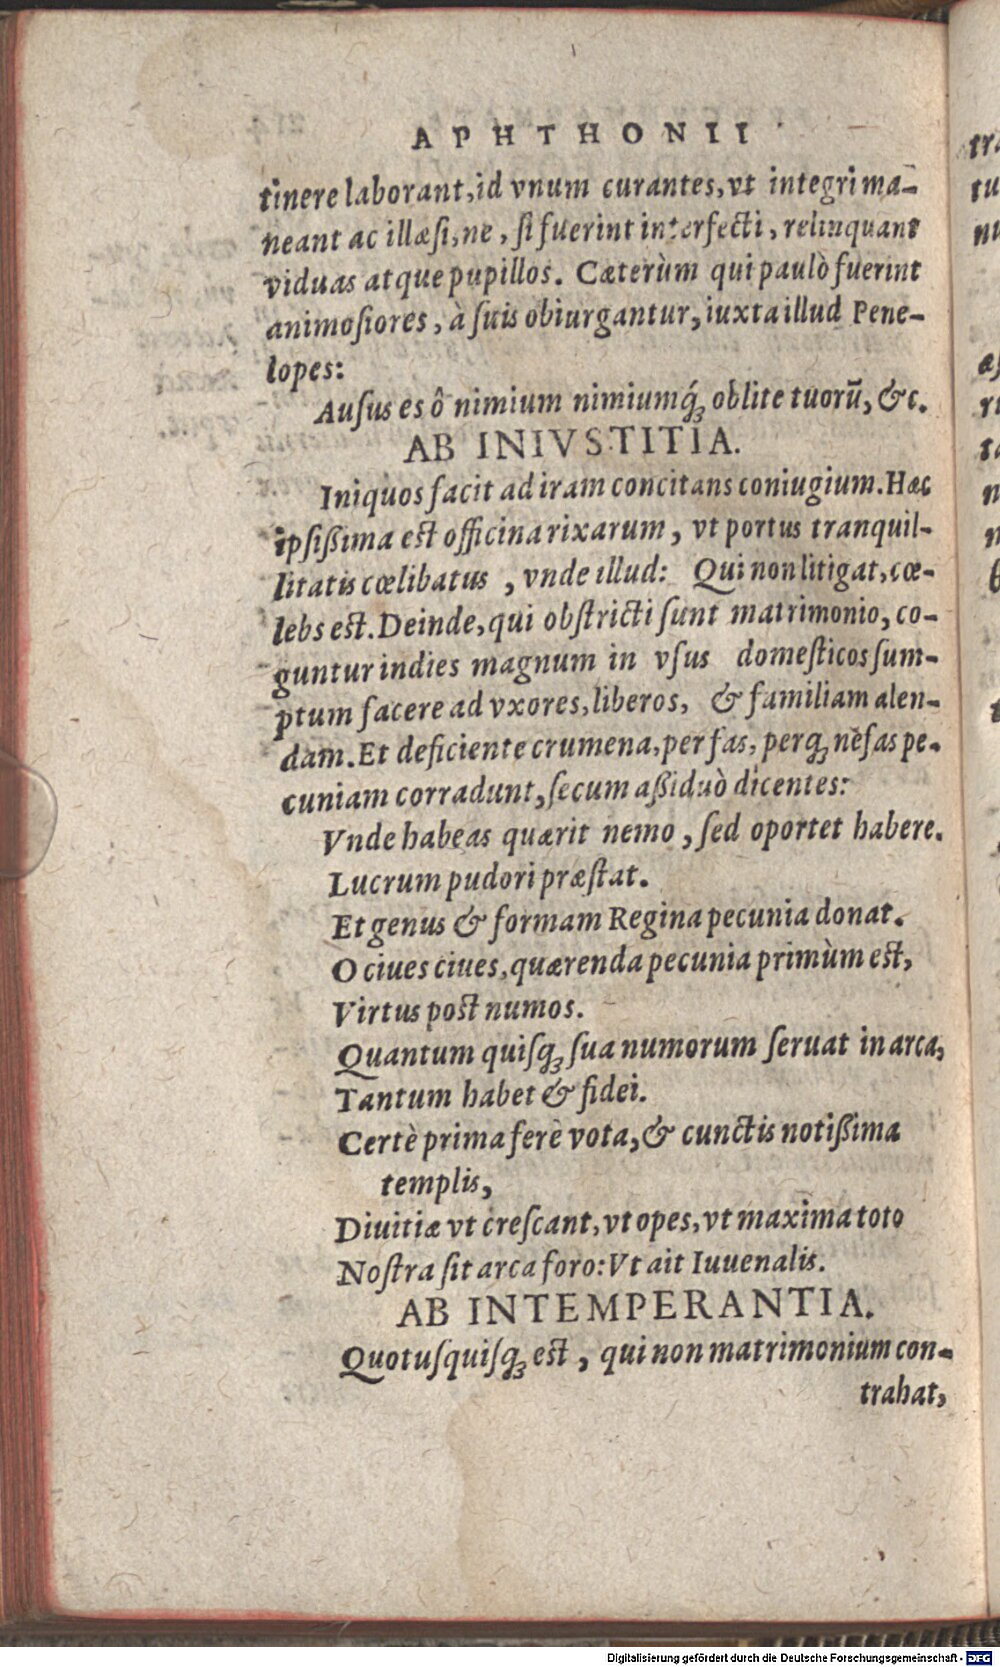 APHTHONII
tinere laborant, id vnum curantes, vt integri ma-
neant ac illæsi, ne, si fuerint interfecti, relinquant
viduas atque pupillos. Cæterùm qui paulò fuerint
animosiores, à suis obiurgantur, iuxta illud Pene-
lopes:
Ausus es ô nimium nimiumq́ꝫ oblite tuorū, &c.
AB INIVSTITIA.
Iniquos facit ad iram concitans coniugium. Hæc
ipsißima est officina rixarum, vt portus tranquil-
litatis cœlibatus, vnde illud: Qui non litigat, cœ-
lebs est. Deinde, qui obstricti sunt matrimonio, co-
guntur indies magnum in vsus domesticos sum-
ptum facere ad vxores, liberos, & familiam alen-
dam. Et deficiente crumena, per fas, perqꝫ nefas pe-
cuniam corradunt, secum aßiduò dicentes:
Vnde habeas quærit nemo, sed oportet habere.
Lucrum pudori præstat.
Et genus & formam Regina pecunia donat.
O ciues ciues, quærenda pecunia primùm est,
Virtus post numos.
Quantum quisqꝫ sua numorum seruat in arca,
Tantum habet & fidei.
Certè prima ferè vota, & cunctis notißima
templis,
Diuitiæ vt crescant, vt opes, vt maxima toto
Nostra sit arca foro: Vt ait Iuuenalis.
AB INTEMPERANTIA.
Quotusquisqꝫ est, qui non matrimonium con-
trahat,
Digitalisierung gefördert durch die Deutsche Forschungsgemeinschaft - DFG